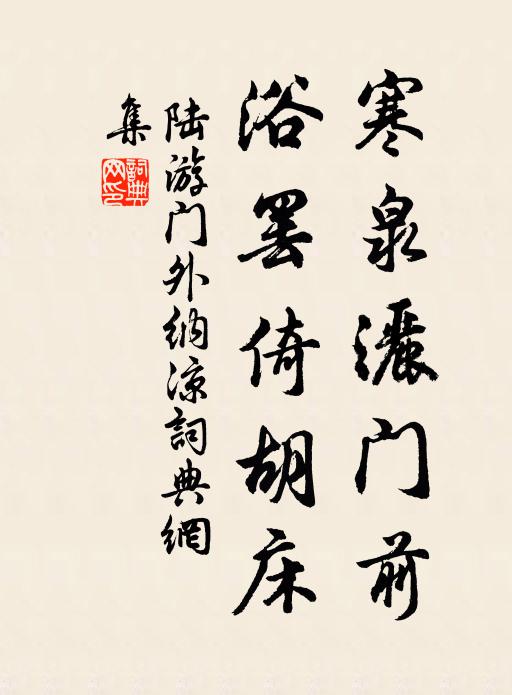 寒泉灑门前
浴罢倚胡床
陆游门外纳凉詞典網
集
詞典
网印